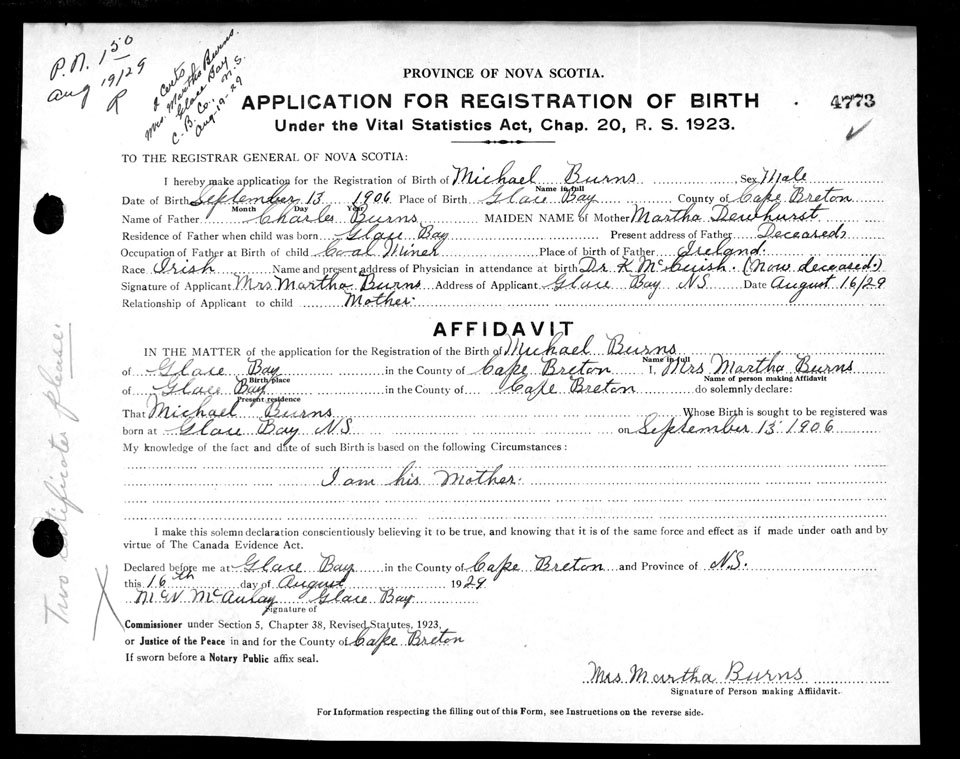 P.N. 1 50
Aug 19/29
R
2 Certs
Mrs. Martha Burns.
Glace Bay
C. B. Co. N.S.
Aug. 19-29
PROVINCE OF NOVA SCOTIA.
APPLICATION FOR REGISTRATION OF BIRTH
4773
Under the Vital Statistics Act, Chap. 20, R. S. 1923.
TO THE REGISTRAR GENERAL OF NOVA SCOTIA:
I hereby make application for the Registration of Birth of Michael Burns Sex Male
Name in full
Date of Birth September 13 1906 Place of Birth Glace Bay County of Cape Breton
Month Day Year
Name of Father Charles Burns MAIDEN NAME of Mother Martha Dewhurst
Residence of Father when child was born Glace Bay Present address of Father Deceased
Occupation of Father at Birth of child Coal Miner Place of birth of Father Ireland.
Race Irish Name and present address of Physician in attendance at birth Dr. K McCuish. (Now deceased.)
Signature of Applicant Mrs Martha Burns Address of Applicant Glace Bay NS Date August 16/29
Relationship of Applicant to child Mother.
AFFIDAVIT
IN THE MATTER of the application for the Registration of the Birth of Michael Burns
Name in full
of Glace Bay in the County of Cape Breton I, Mrs Martha Burns
Birth place Name of person making Affidavit
of Glace Bay in the County of Cape Breton do solemnly declare:
Present residence
That Michael Burns Whose Birth is sought to be registered was
born at Glace Bay NS on September 13 1906
My knowledge of the fact and date of such Birth is based on the following Circumstances:
I am his Mother.
I make this solemn declaration conscientiously believing it to be true, and knowing that it is of the same force and effect as if made under oath and by
virtue of The Canada Evidence Act.
Declared before me at Glace Bay in the County of Cape Breton and Province of N.S.
this 16th day of August 1929
McAulay Glace Bay
Signature of
Commissioner under Section 5, Chapter 38, Revised Statutes, 1923,
or Justice of the Peace in and for the County of Cape Breton
If sworn before a Notary Public affix seal.
Mrs Martha Burns
Signature of Person making Affiidavit.
For Information respecting the filling out of this Form, see Instructions on the reverse side.
Two certificates please.